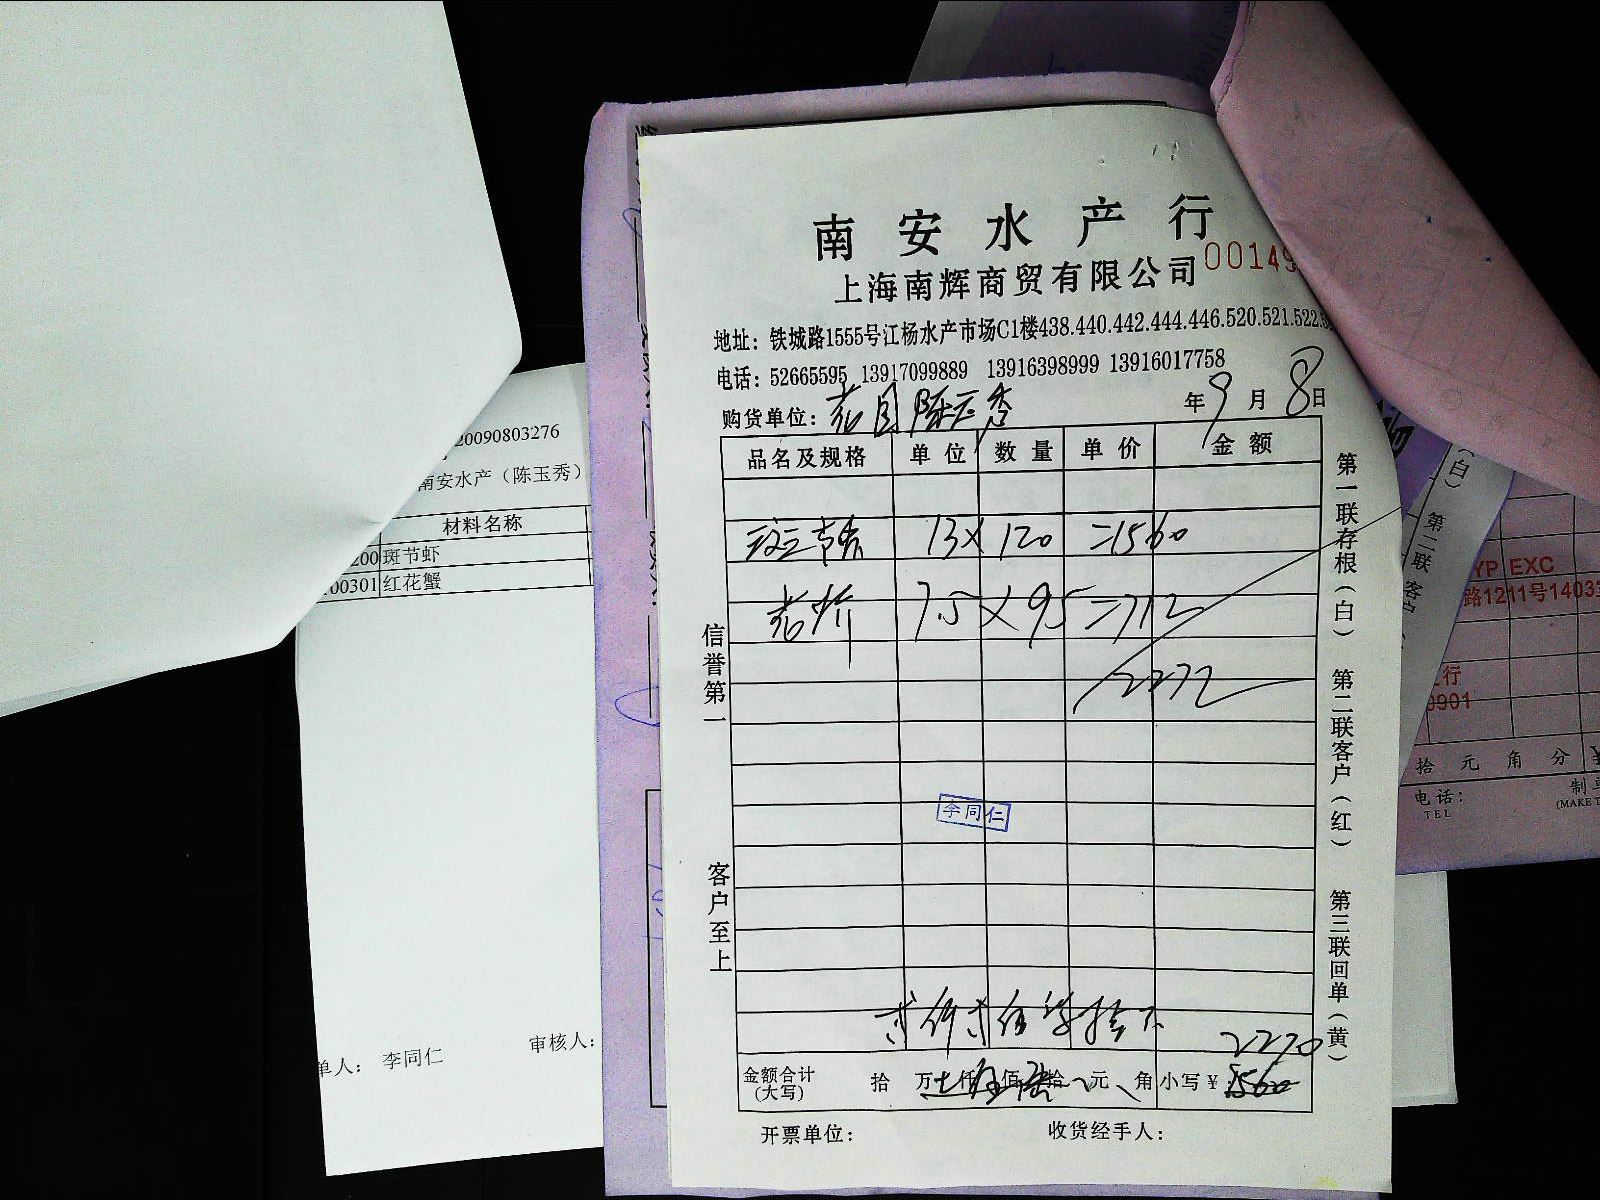 南安水产行
上海南辉商贸有限公司 00149
地址：铁城路1555号江杨水产市场C1楼438.440.442.444.446.520.521.522.5
电话：52665595 13917099889 13916398999 13916017758
购货单位：花园陈玉秀 年9月8日
品名及规格 单位 数量 单价 金额
斑节 13×120=1560
7.5×95=712
2272
李同仁
贰仟贰佰柒拾元
2270
金额合计(大写) 拾 万 仟 佰 拾 元 角 小写￥1560
开票单位： 收货经手人：
信誉第一
客户至上
第一联存根（白） 第二联客户（红） 第三联回单（黄）
20090803276
南安水产（陈玉秀）
材料名称
200 斑节虾
00301 红花蟹
单人： 李同仁 审核人：
（白） 第二联 客户
YP EXC
路1211号1403
行
0901
拾 元 角 分 ￥
电话：
TEL
制
(MAKE T